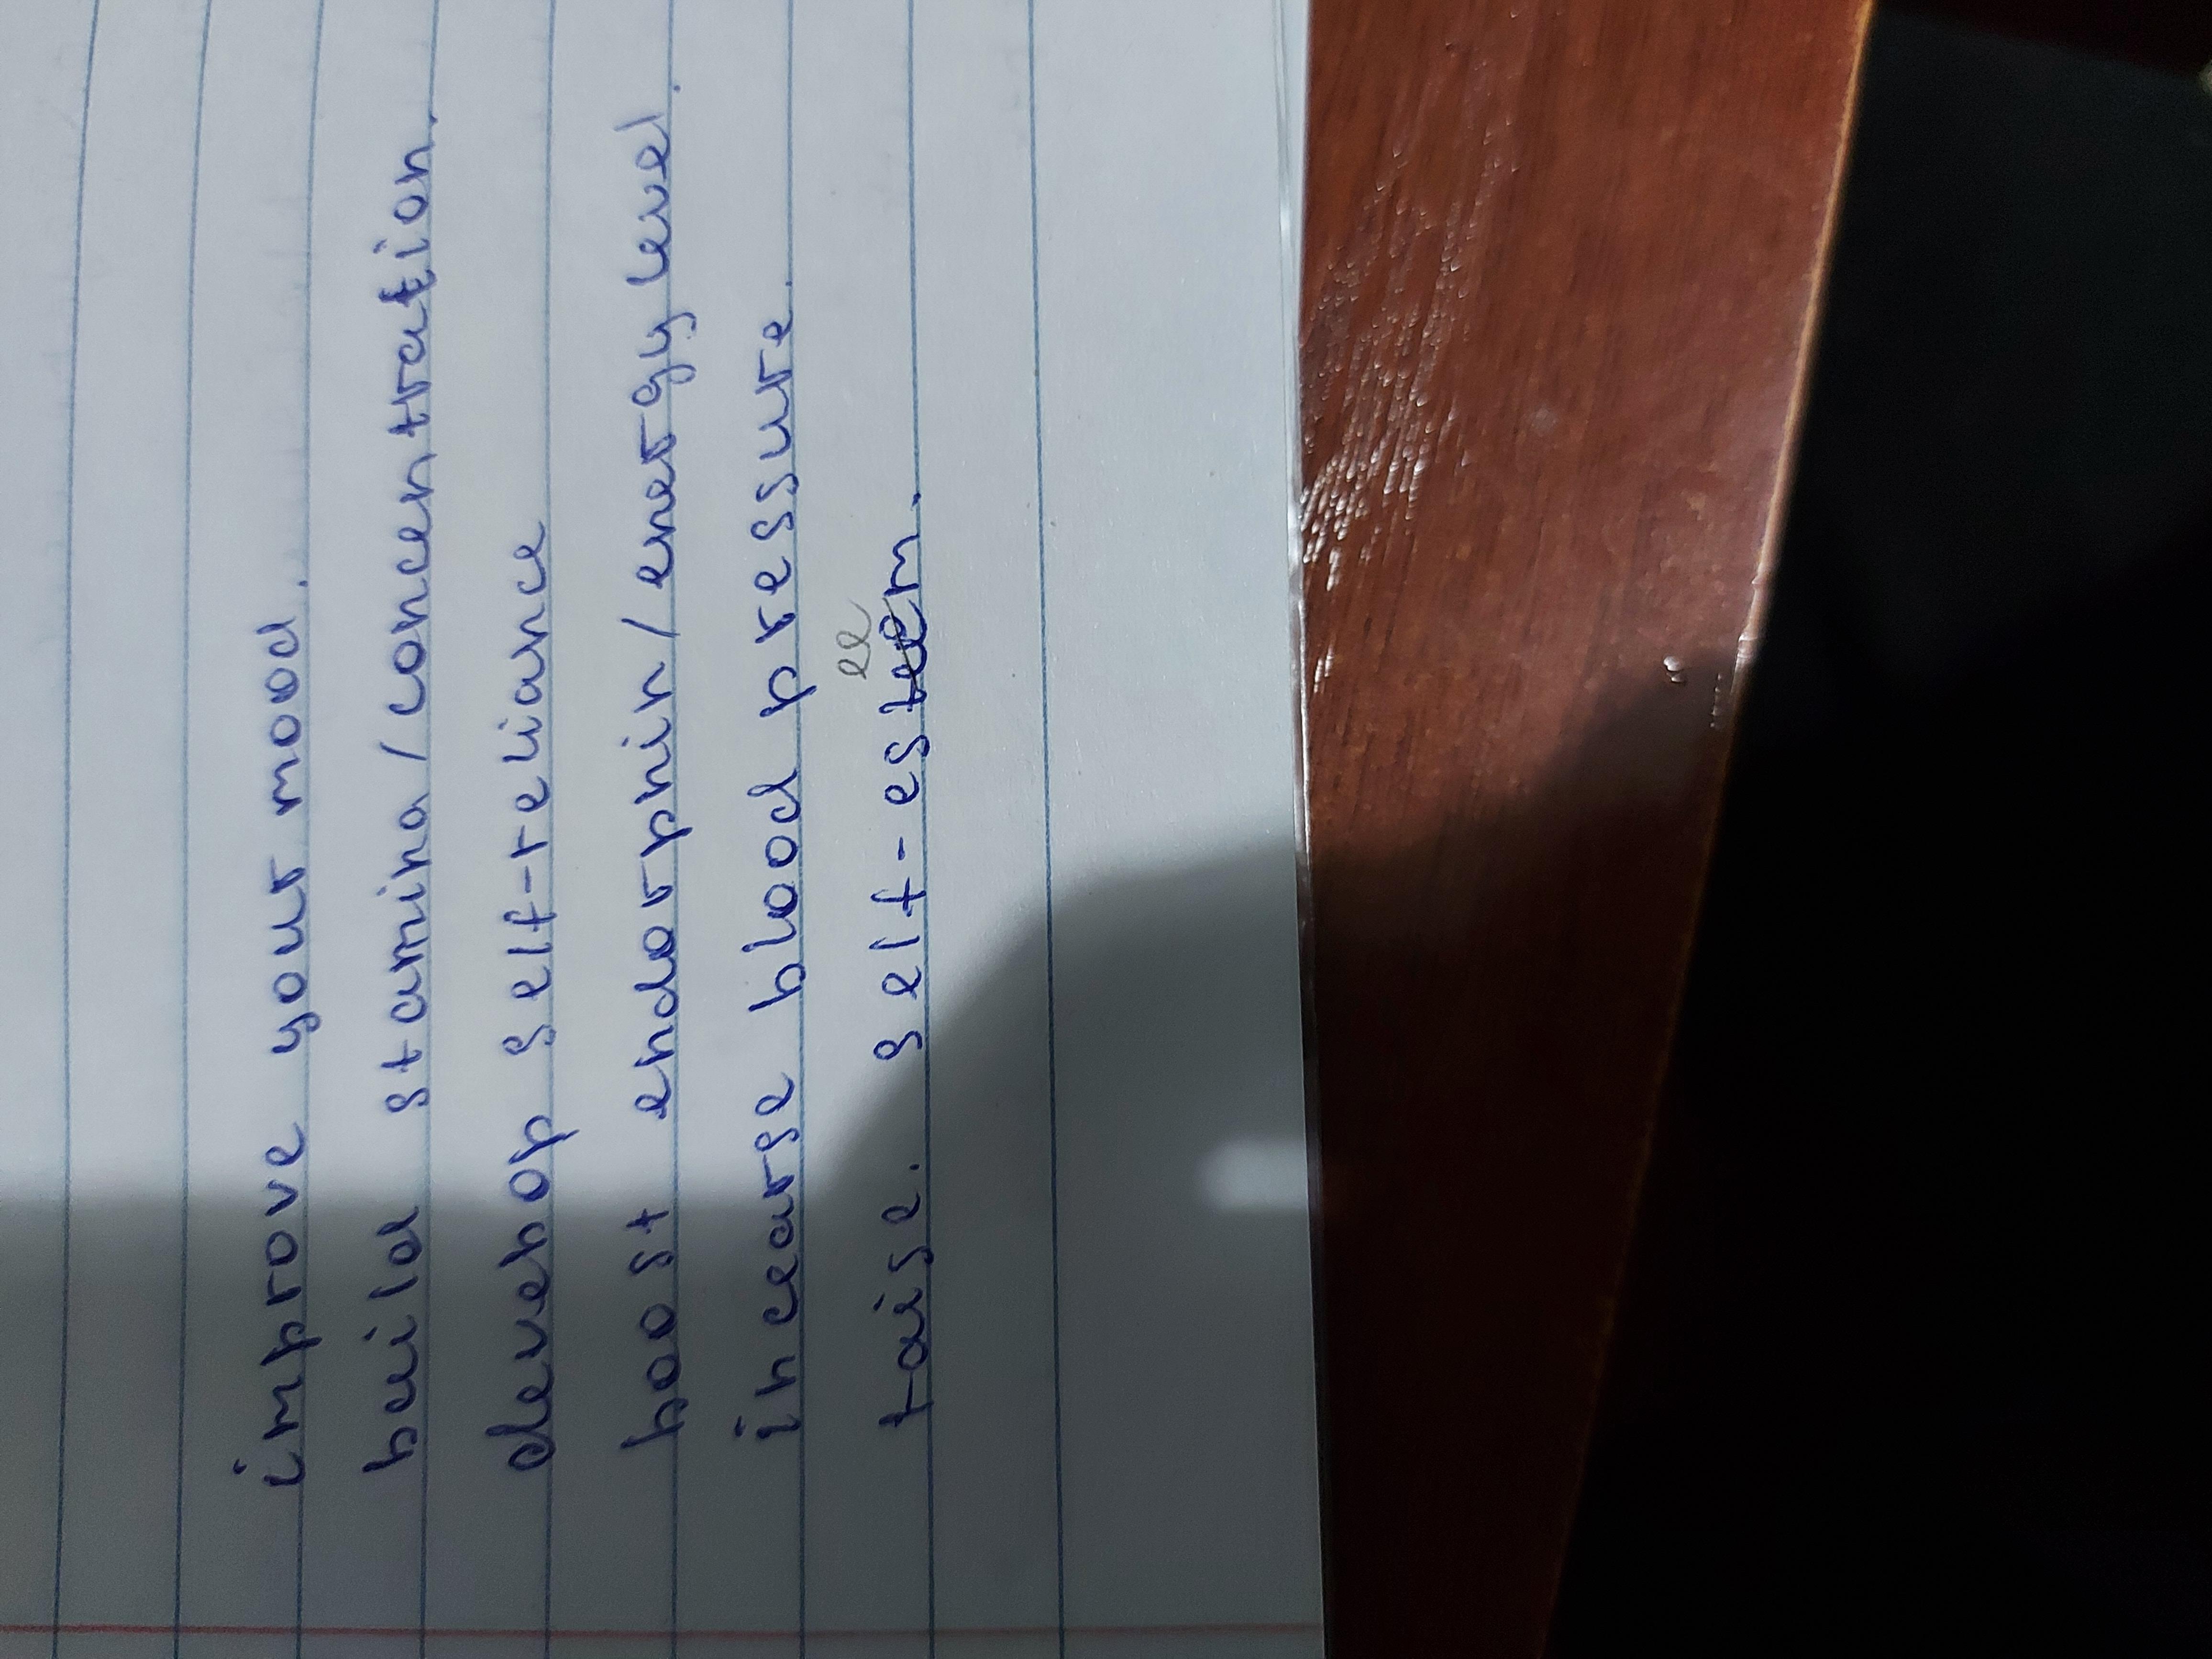 improve your mood.
build stamina/concentration.
develop self-reliance
boost endorphin/energy level.
incearse blood pressure.
ee
raise. self-esteem.